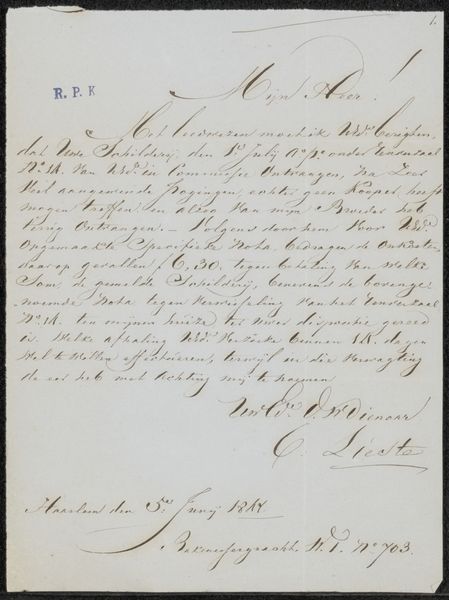 1.
R. P. K
Mijn Heer!
Met leedwezen moet ik UEd. berigten,
dat Uwe Schilderij, den 1e July Ao. po. onder
No. 14. van UEd. in Commissie Ontvangen, na Zeer
Veel aangewende Pogingen, echter geen Kooper heeft
mogen treffen en alzoo van mijn Broeder heb
terug Ontvangen. — Volgens door hem voor UEd.
Opgemaakte Specifieke Nota, bedragen de Onkosten,
daarop gevallen f 6,30. tegen betaling van welke
Som, de gemelde Schilderij, benevens de bovenge-
noemde Nota tegen verwisseling van het
No. 14. ten mijnen huize ter uwer dispositie gereed
is. Welke afhaling UEd. verzoeke binnen 14. dagen
Wel te Willen effectueren, terwijl in die verwagting
de eer heb met achting mij te noemen
UwEd. D. W. Dienaar
C. Lieste
Haarlem den 5e Junij
Bakenessergracht. W. 1. No 703.